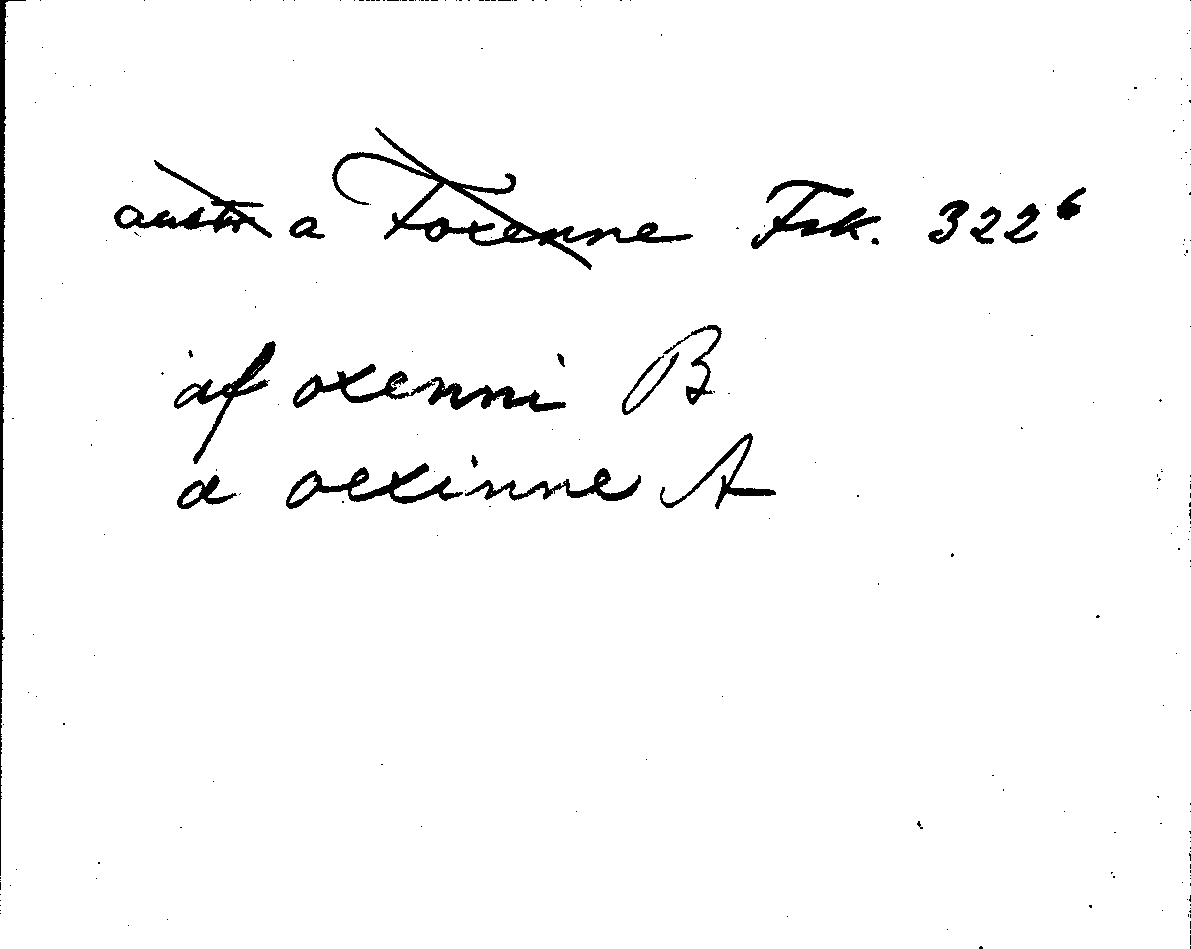 austr a Foxenne Fsk. 322⁶
af oxenni B
a oexinne A